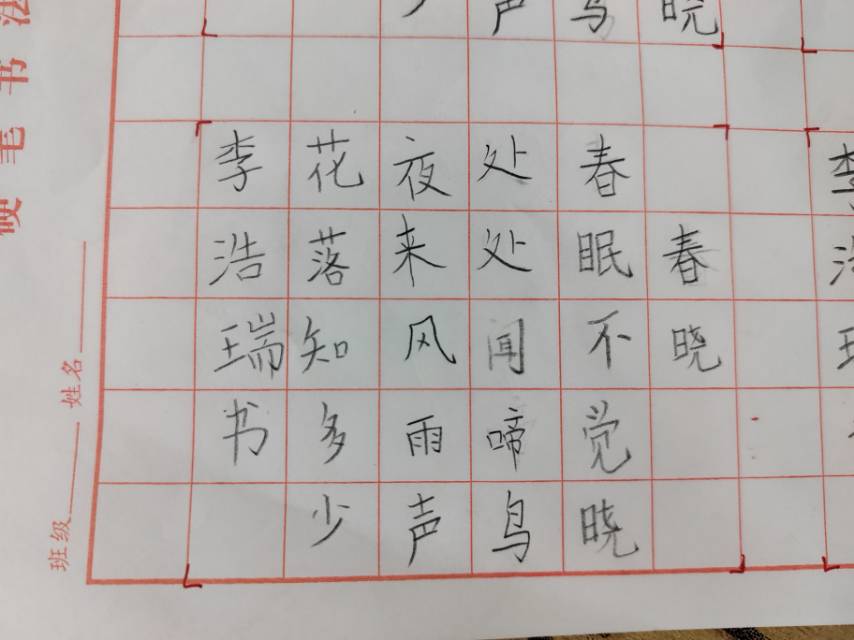 春晓
春眠不觉晓
处处闻啼鸟
夜来风雨声
花落知多少
李浩瑞书
硬笔书法
班级
姓名
声
鸟
晓